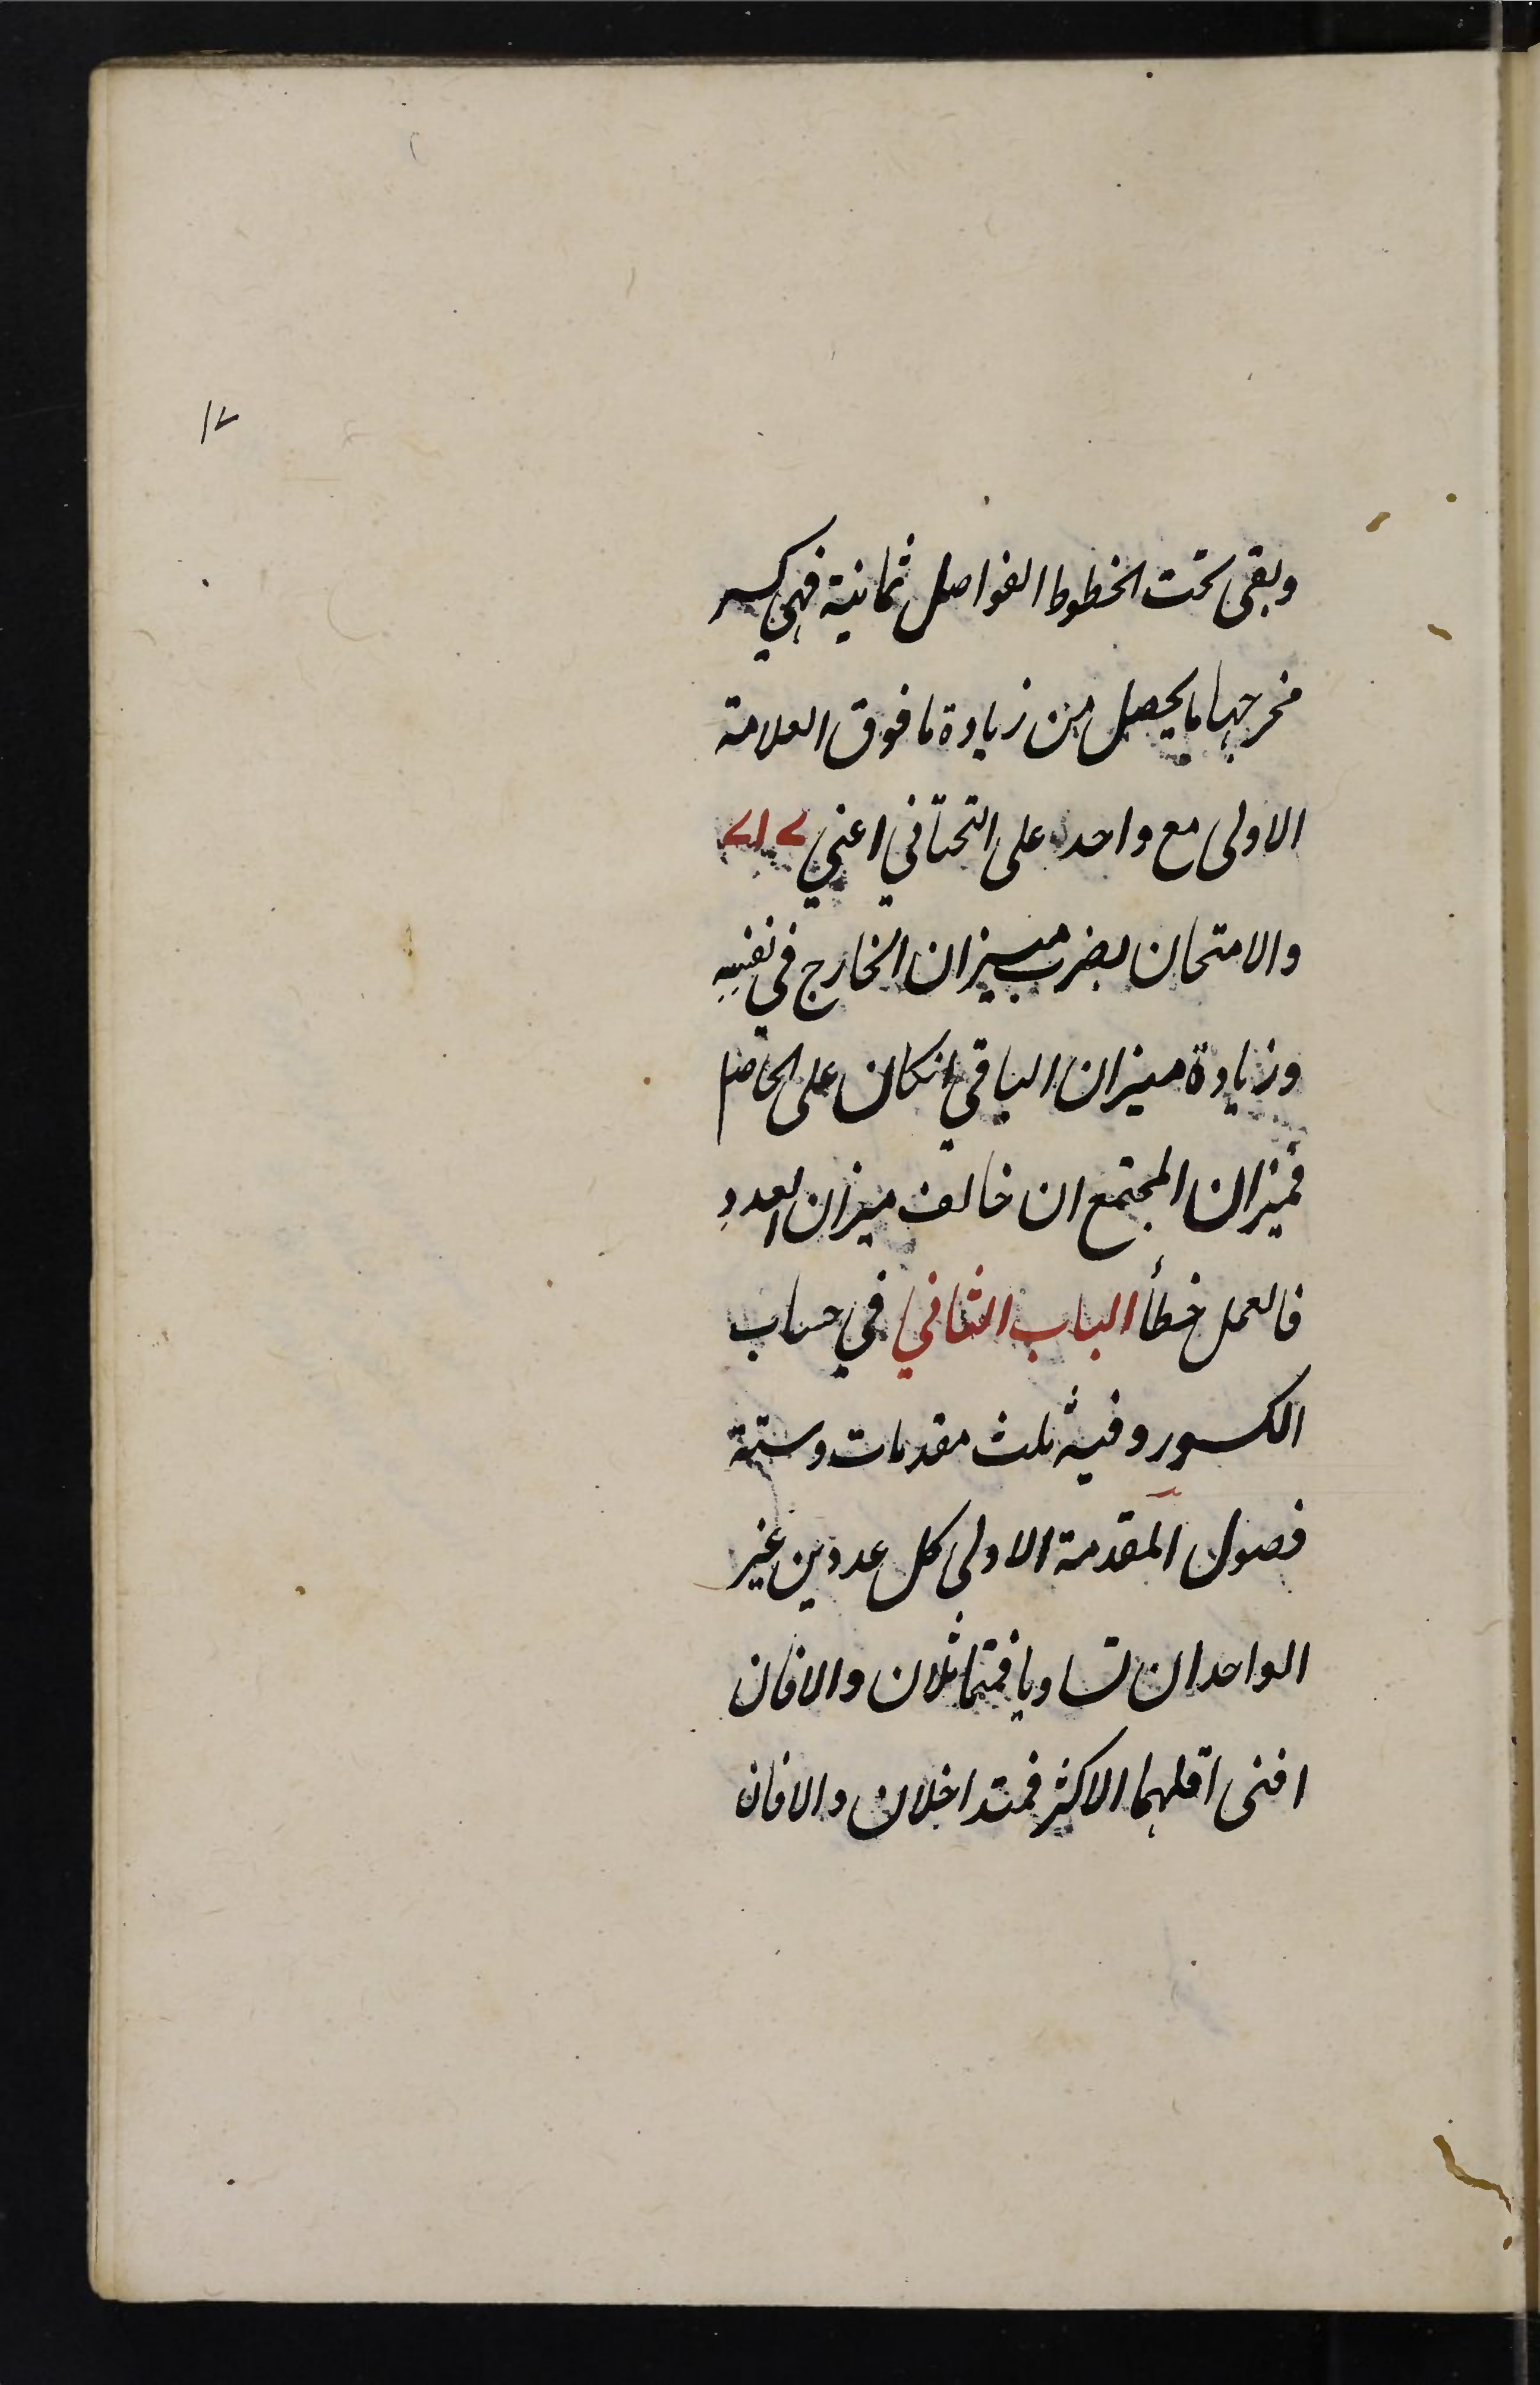 ١٢
وبقى تحت الخطوط الفواصل ثمانية فهي كسر
مخرجها ما يحصل من زيادة ما فوق العلامة
الاولى مع واحد على التحتاني اعني
والامتحان بضرب ميزان الخارج في نفسه
وزيادة ميزان الباقي انكان على الحاصل
فميزان المجتمع ان خالف ميزان العدد
فالعمل خطأ الباب الثاني في حساب
الكسور وفيه ثلث مقدمات وستة
فصول المقدمة الاولى كل عددين غير
الواحد ان تساويا فمتماثلان والا فان
افنى اقلهما الاكثر فمتداخلان والا فان